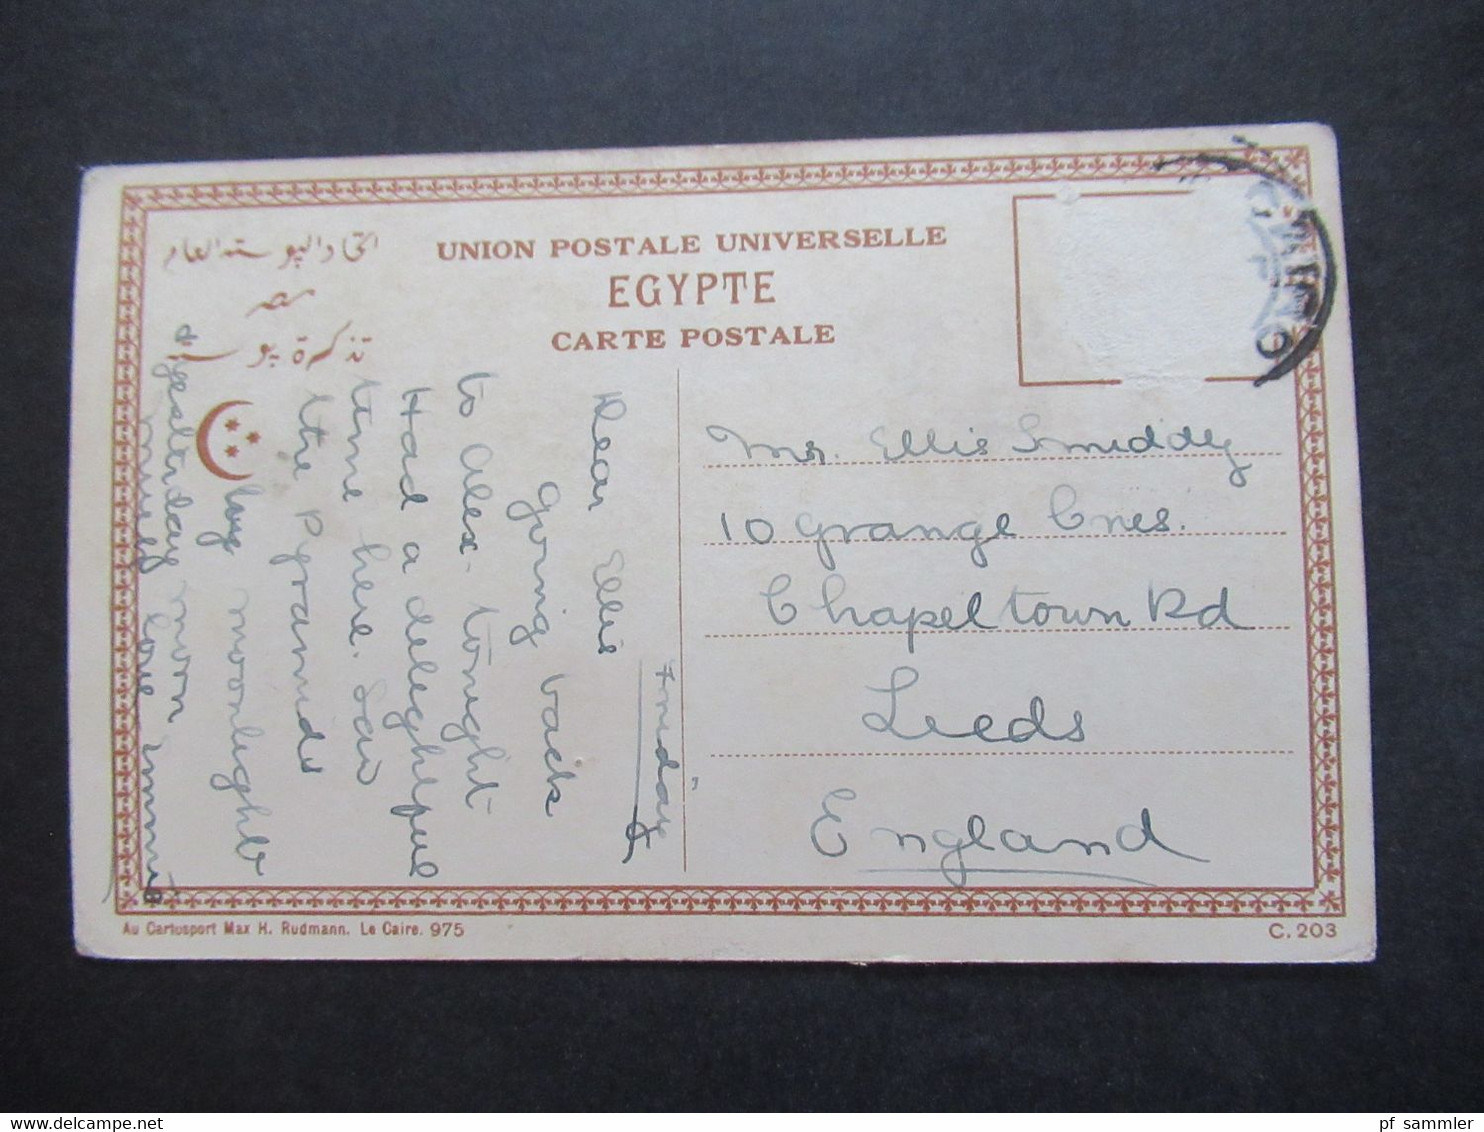 اتحاد البوسته العام
مصر
تذكرة بوسته
UNION POSTALE UNIVERSELLE
EGYPTE
CARTE POSTALE
CAIRO
Friday
Dear Ellis
going back
to Alex- tonight
Had a delightful
time here. Saw
the Pyramids
by moonlight
yesterday
much love
Mr. Ellis Smiddy
10 Grange Cres.
Chapeltown Rd
Leeds
England
Au Cartosport Max H. Rudmann. Le Caire. 975
C. 203
www.delcampe.net
pf sammler